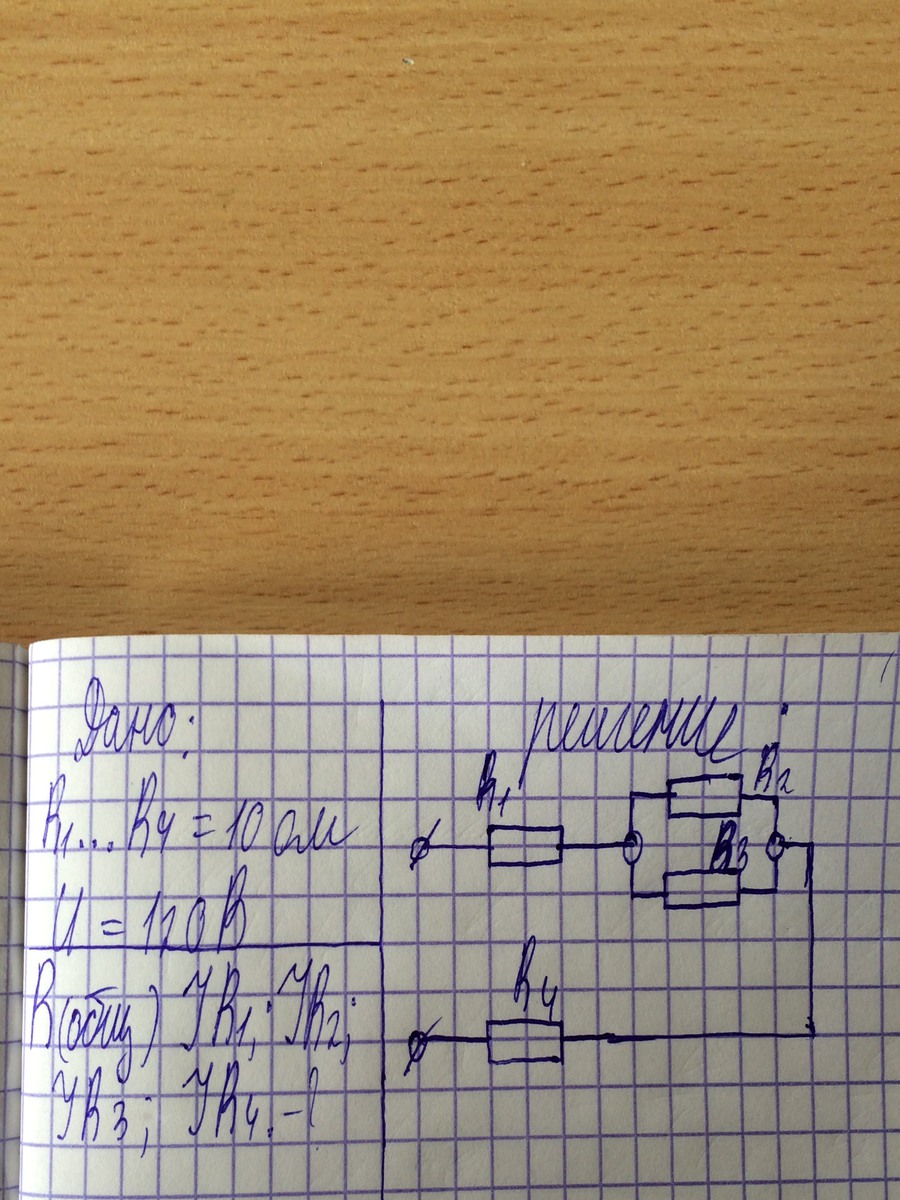 Дано:
R1...R4 = 10 ом
U = 120В
R(общ) IR1; IR2;
IR3; IR4.-?
решение:
R1
R2
R3
R4